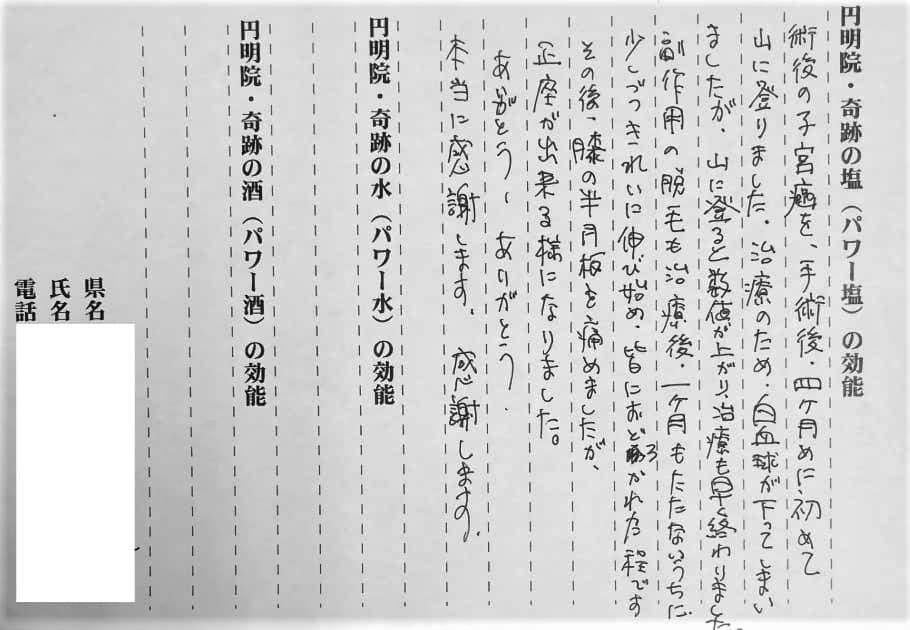 円明院・奇跡の塩（パワー塩）の効能
術後の子宮癌を、手術後、四ヶ月めに、初めて
山に登りました。治療のため、白血球が下ってしまい
ましたが、山に登ると数値が上がり、治療も早く終わりました。
副作用の脱毛も治療後、一ヶ月もたたないうちに、
少しづつきれいに伸び始め、皆におどろかれた程です
その後、膝の半月板を痛めましたが、
正座が出来る様になりました。
ありがとう、ありがとう、
本当に感謝します。感謝します。
円明院・奇跡の水（パワー水）の効能
円明院・奇跡の酒（パワー酒）の効能
県名
氏名
電話